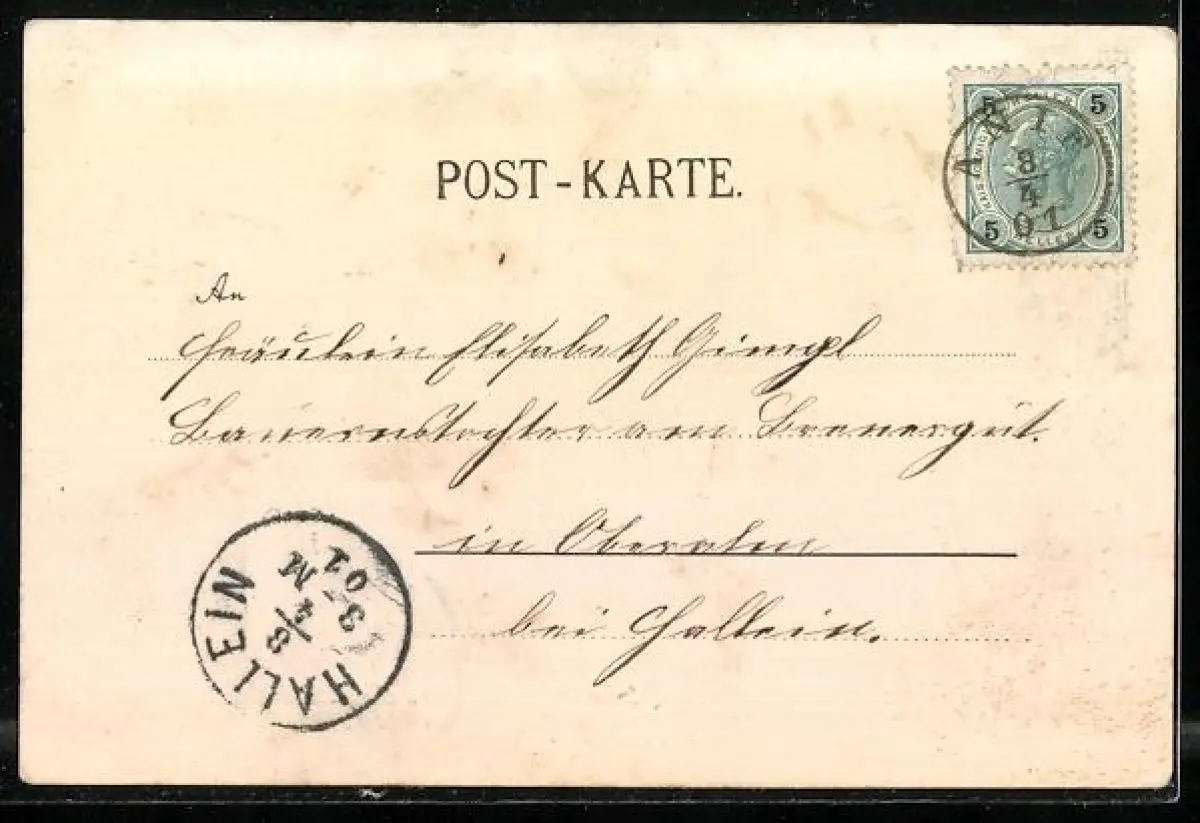 POST-KARTE.
5 5
5 5
8/4
01
An
Fräulein Elisabeth Gimpl
Bauernstochter am
in Oberalm
bei Hallein.
HALLEIN
8/4
M
01